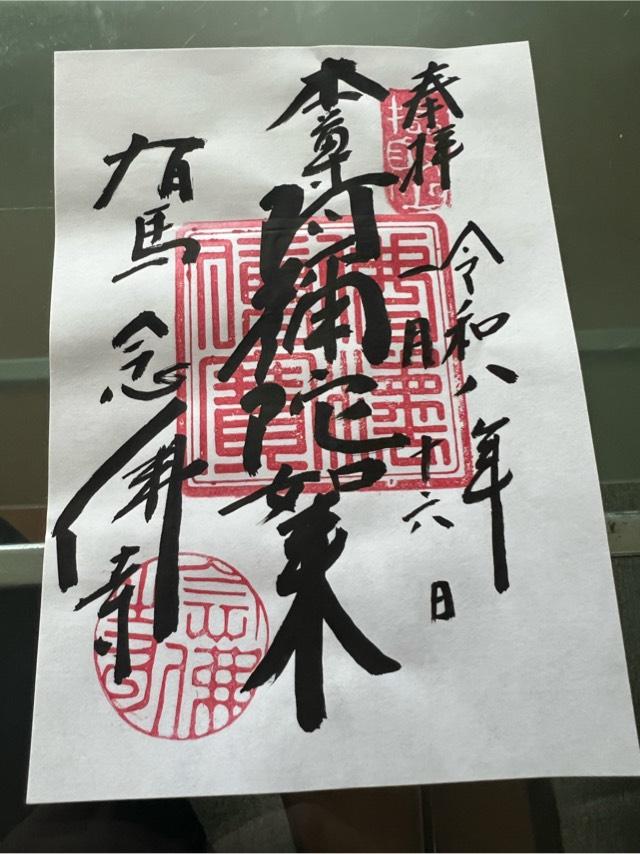 奉拝
令和八年
一月十六日
本尊
阿弥陀如来
有馬
念佛寺
念佛寺